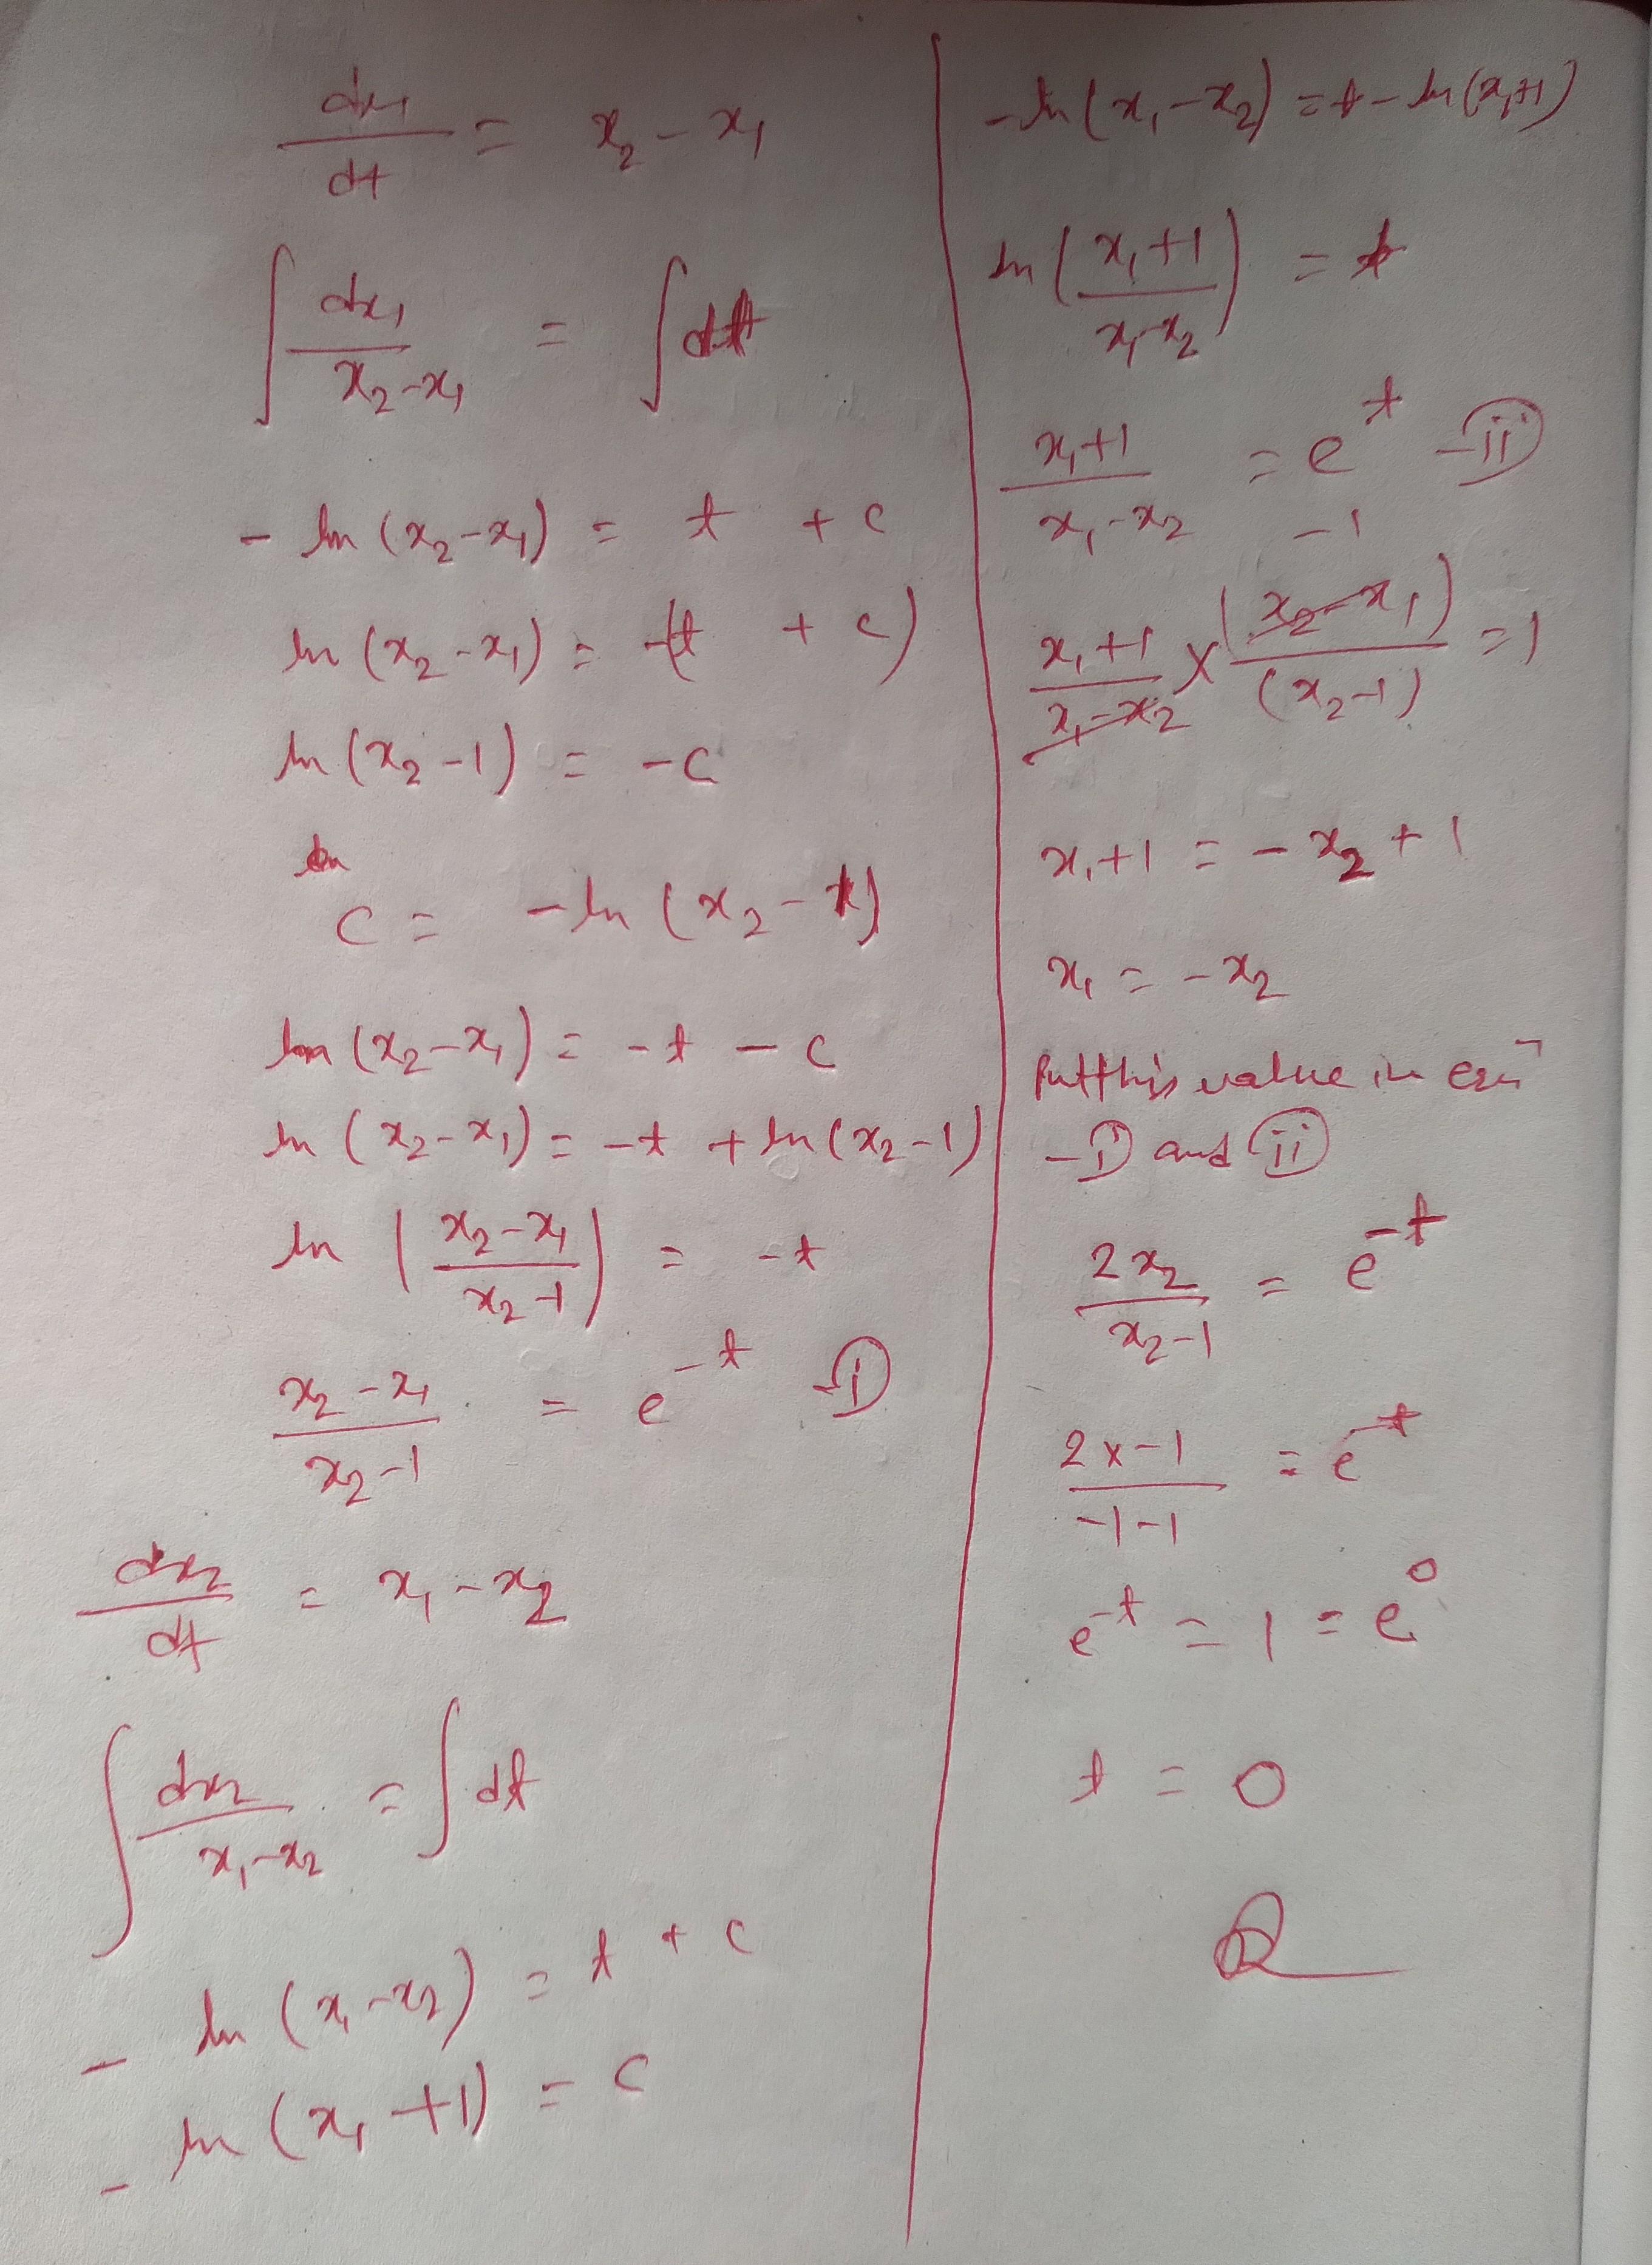 dx₁/dt = x₂ - x₁
∫ dx₁/(x₂-x₁) = ∫ dt
- ln (x₂-x₁) = t + c
ln (x₂-x₁) = -(t + c)
ln (x₂-1) = -c
c = -ln (x₂-1)
ln (x₂-x₁) = -t - c
ln (x₂-x₁) = -t + ln(x₂-1)
ln ((x₂-x₁)/(x₂-1)) = -t
(x₂-x₁)/(x₂-1) = e^-t -(i)
dx₂/dt = x₁-x₂
∫ dx₂/(x₁-x₂) = ∫ dt
- ln (x₁-x₂) = t + c
- ln (x₁+1) = c
-ln (x₁-x₂) = t - ln(x₁+1)
ln ((x₁+1)/(x₁-x₂)) = t
(x₁+1)/(x₁-x₂) = e^t -(ii)
-1
(x₁+1)/(x₁-x₂) × (x₂-x₁)/(x₂-1) = 1
x₁+1 = -x₂+1
x₁ = -x₂
Put this value in eqn
-(i) and (ii)
2x₂/(x₂-1) = e^-t
(2x-1)/(-1-1) = e^-t
e^-t = 1 = e^0
t = 0